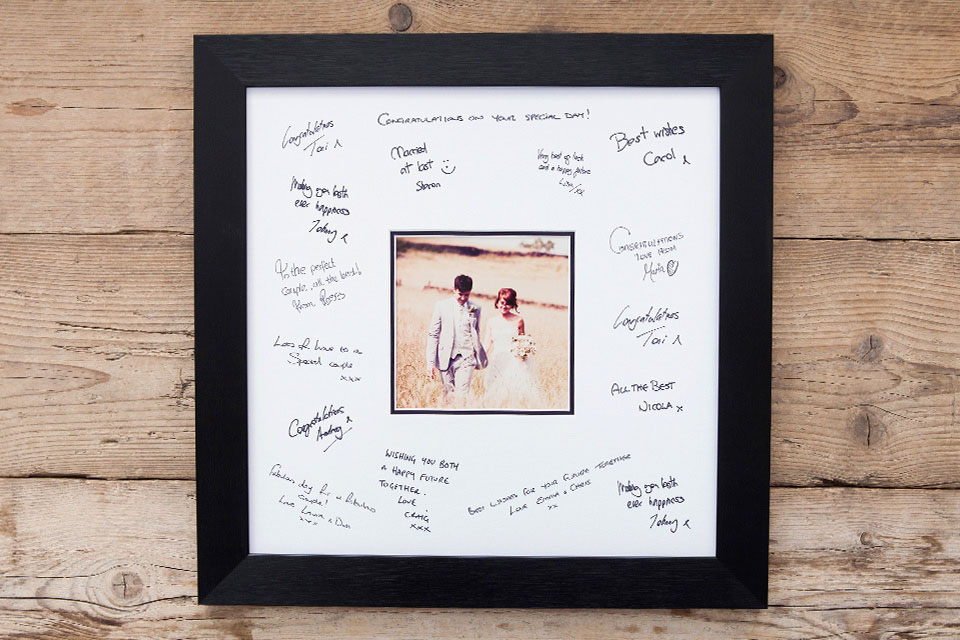 CONGRATULATIONS ON YOUR SPECIAL DAY!
Congratulations
Tori x
Married
at last :)
Sharon
Very best of luck
and a happy future
Lisa xx
Best wishes
Carol x
Wishing you both
ever happiness
Johnny x
To the perfect
couple, all the best!
From
CONGRATULATIONS
LOVE FROM
Marta ♡
Congratulations
Tori x
Lots of love to a
Special couple
xxx
ALL THE BEST
NICOLA x
Congratulations
Audrey x
WISHING YOU BOTH
A HAPPY FUTURE
TOGETHER.
LOVE
CRAIG
xxx
Fabulous day for a fabulous
couple!
Love Laura & Dan
xxx
BEST WISHES FOR YOUR FUTURE TOGETHER
LOVE EMMA & CHRIS
xx
Wishing you both
ever happiness
Johnny x